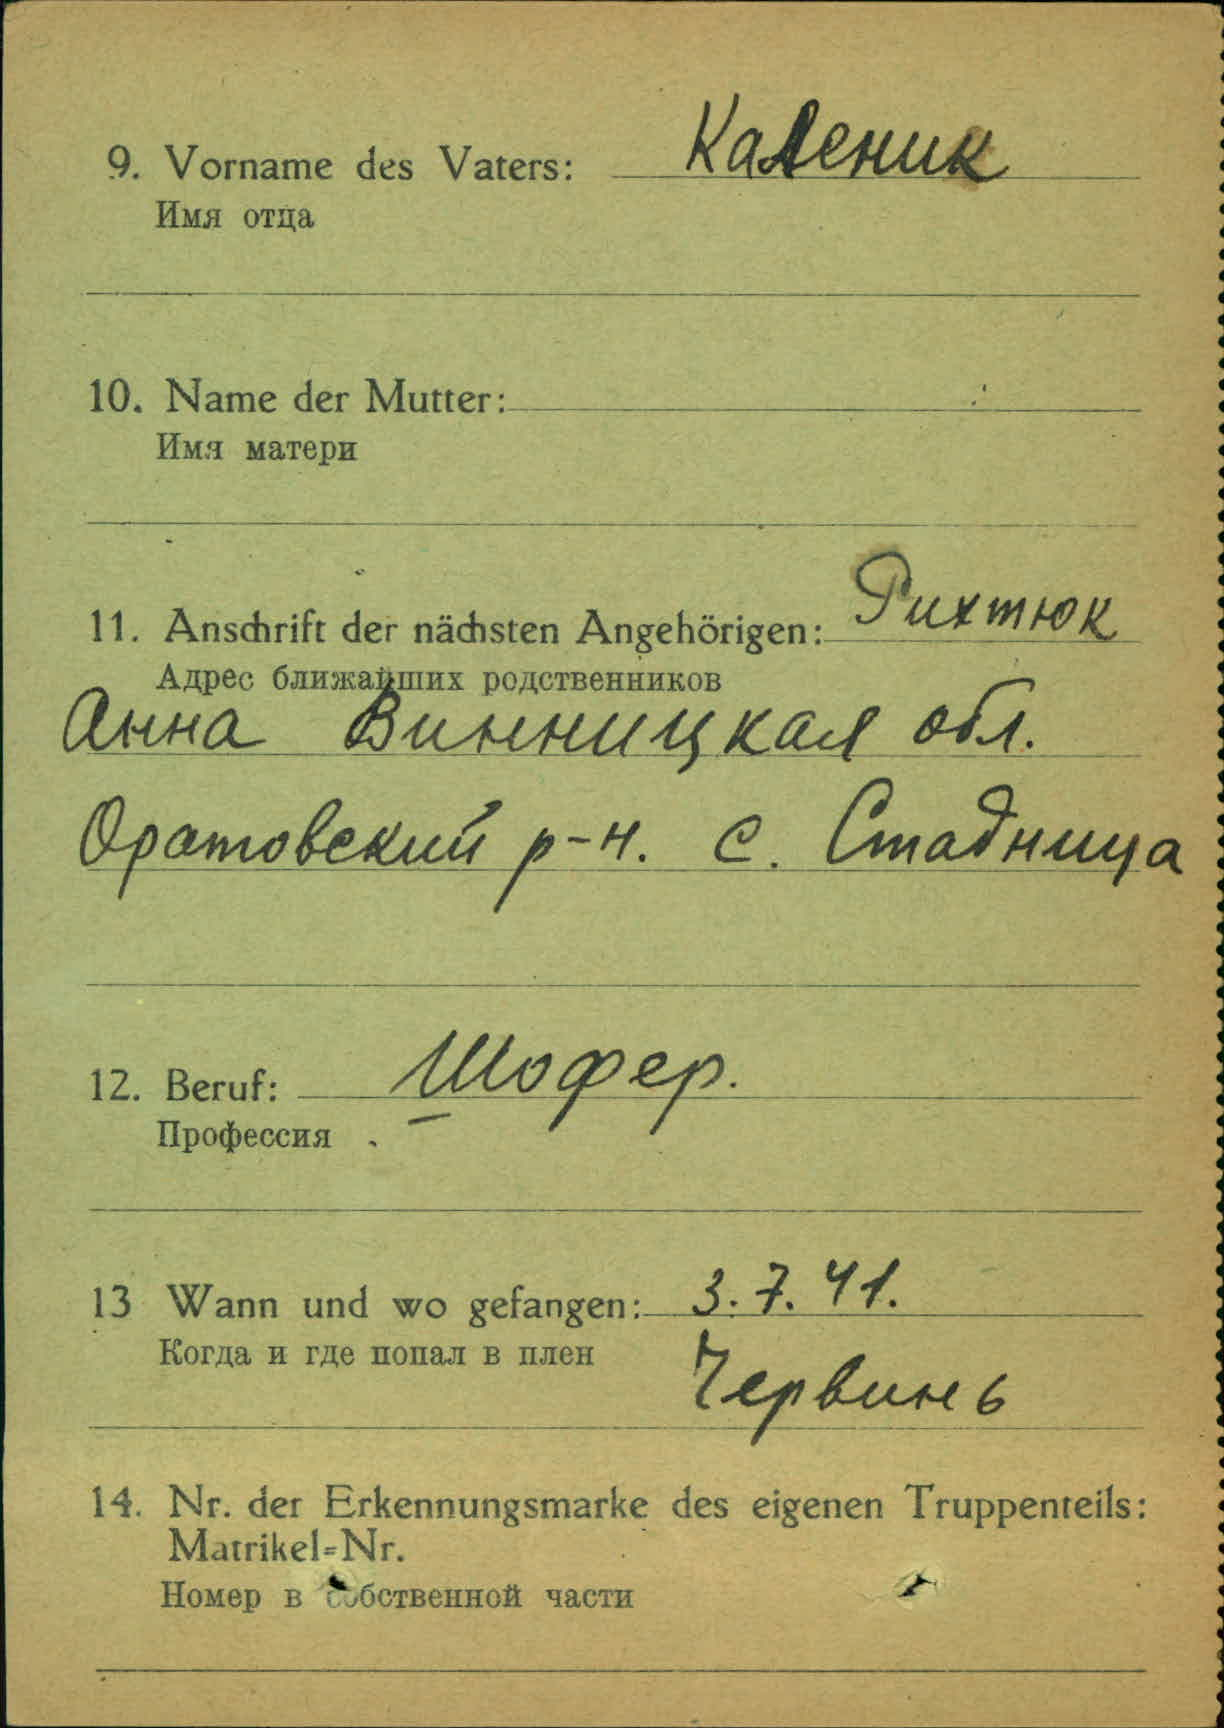 9. Vorname des Vaters: Каленик
Имя отца
10. Name der Mutter:
Имя матери
11. Anschrift der nächsten Angehörigen: Рихтюк
Адрес ближайших родственников
Анна Винницкая обл.
Оратовский р-н. с. Стадница
12. Beruf: Шофер.
Профессия
13 Wann und wo gefangen: 3.7.41.
Когда и где попал в плен
Червинь
14. Nr. der Erkennungsmarke des eigenen Truppenteils:
Matrikel=Nr.
Номер в собственной части